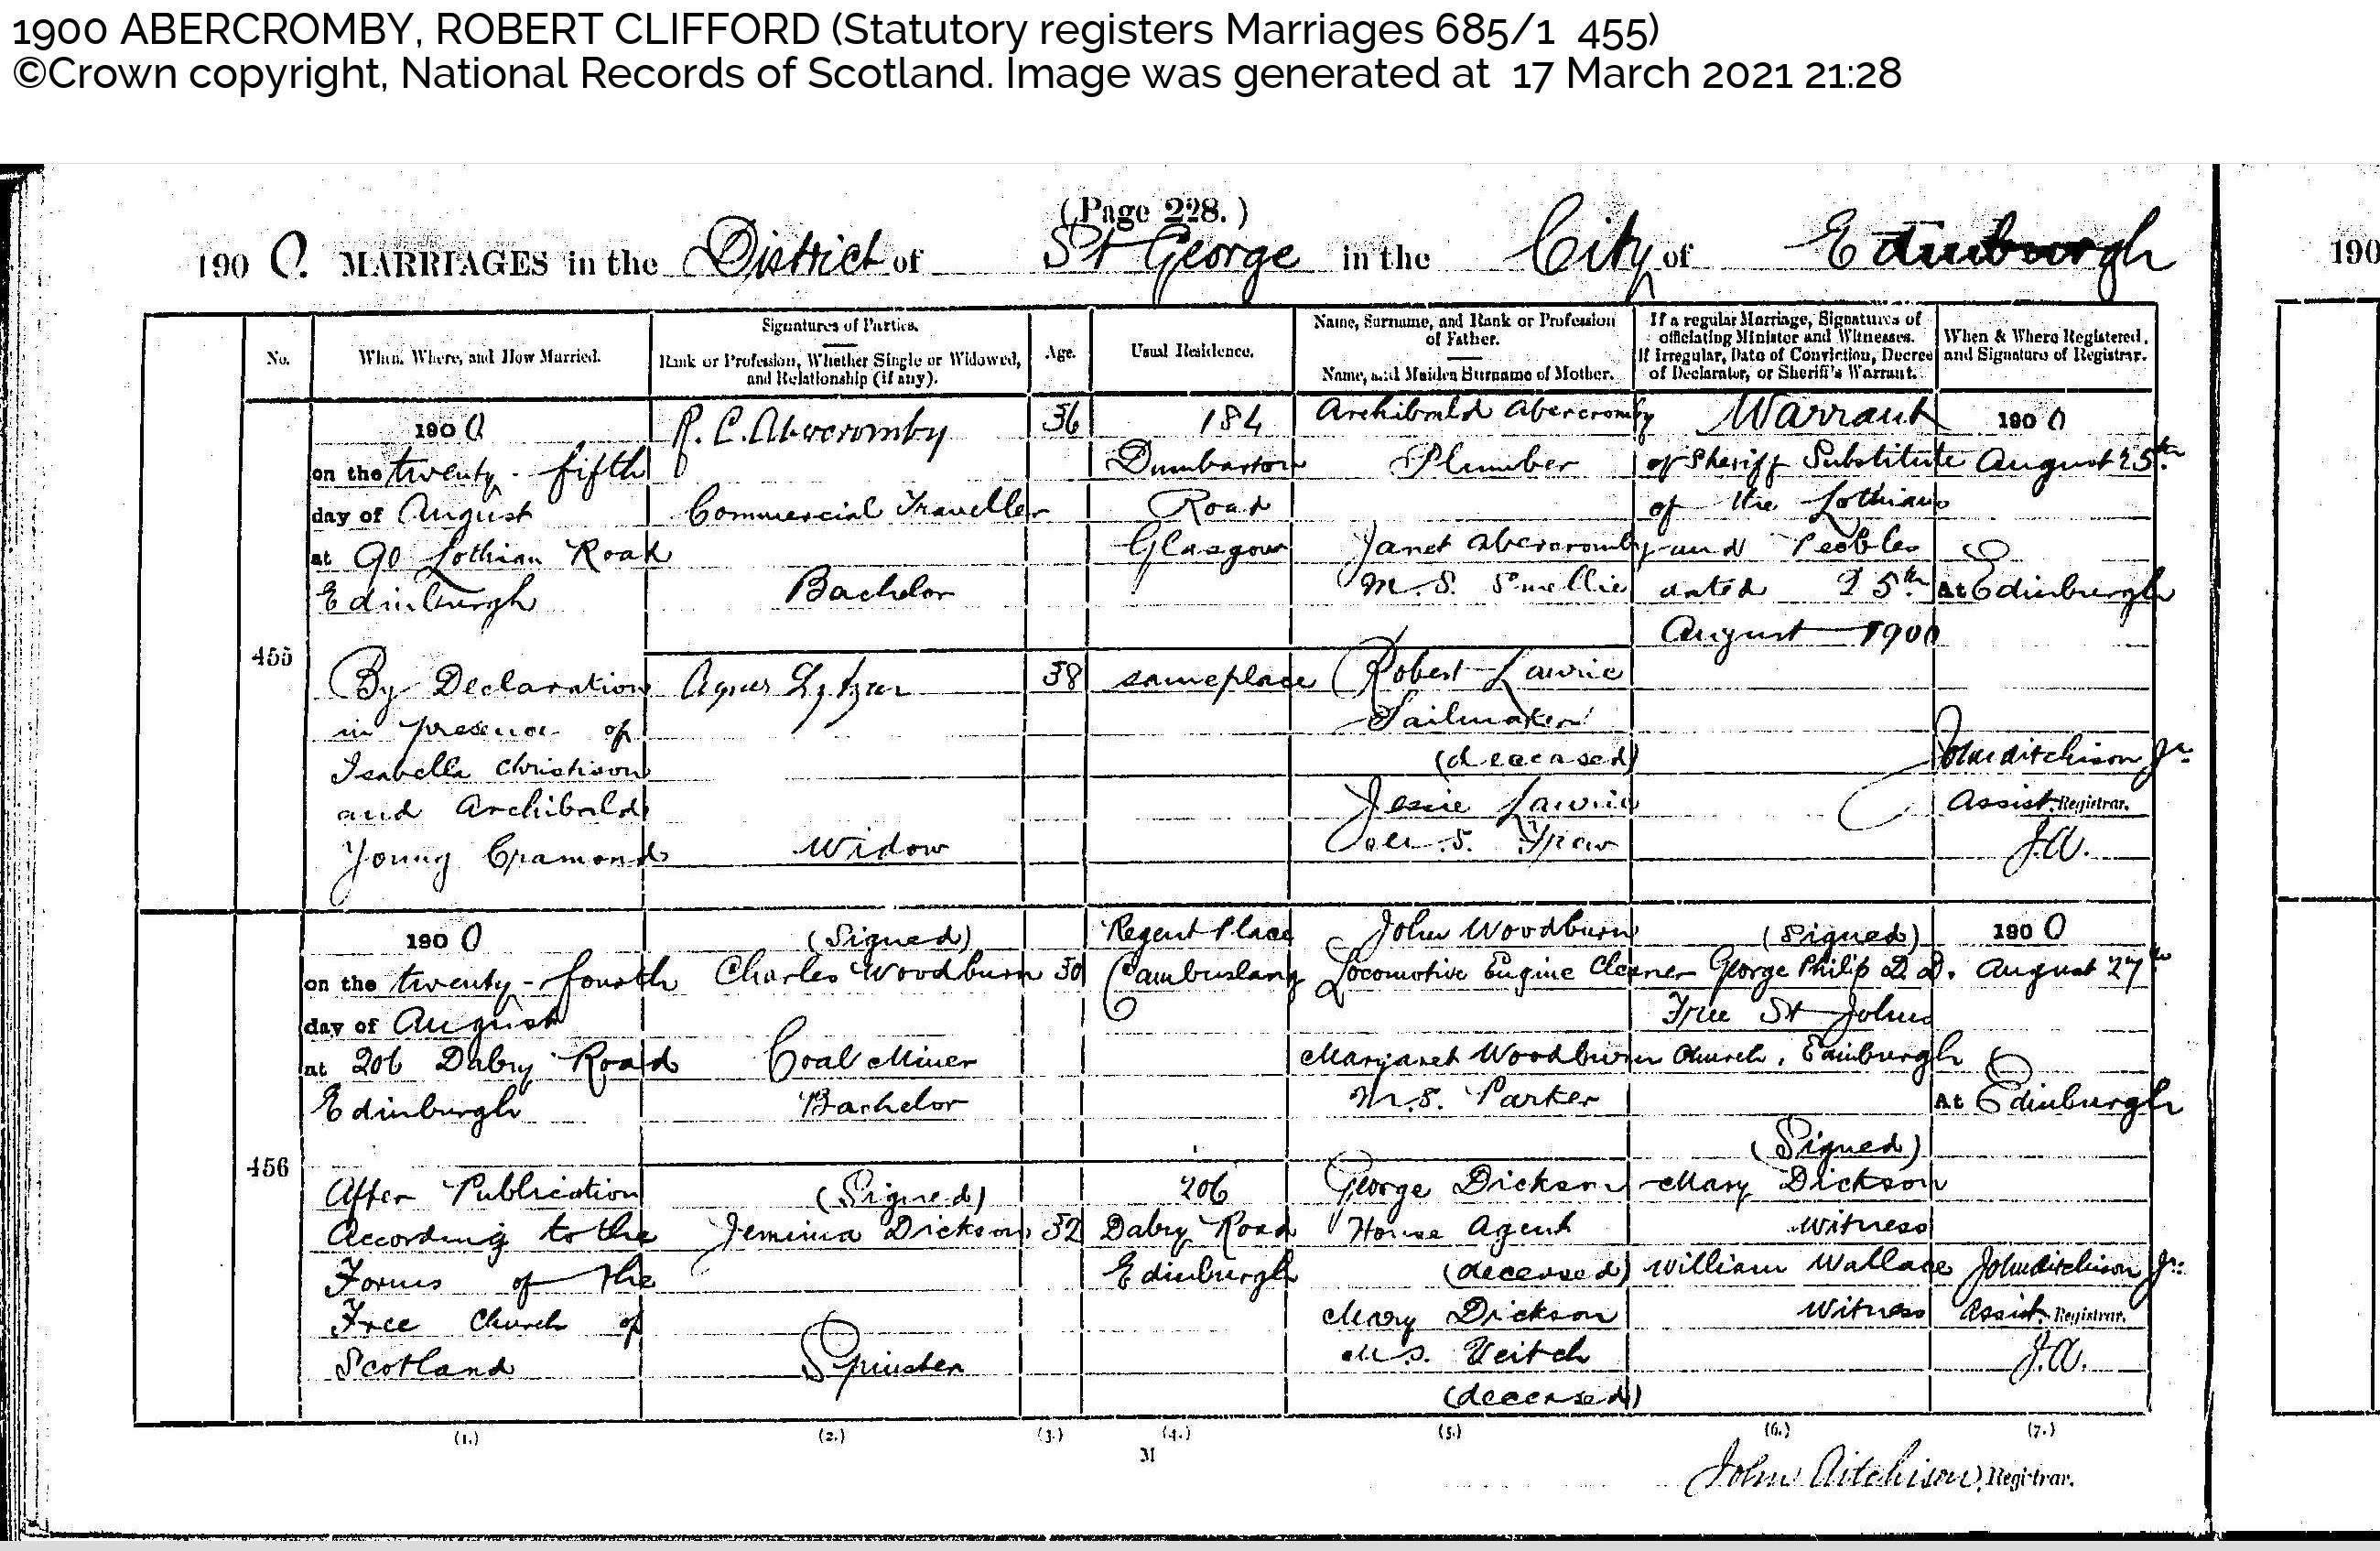 1900 ABERCROMBY, ROBERT CLIFFORD (Statutory registers Marriages 685/1 455)
©Crown copyright, National Records of Scotland. Image was generated at 17 March 2021 21:28
(Page 228.)
1900. MARRIAGES in the District of St George in the City of Edinburgh
190
No.
When, Where, and How Married.
Signatures of Parties.
Rank or Profession, Whether Single or Widowed,
and Relationship (if any).
Age.
Usual Residence.
Name, Surname, and Rank or Profession
of Father.
Name, and Maiden Surname of Mother.
If a regular Marriage, Signatures of
officiating Minister and Witnesses.
If Irregular, Date of Conviction, Decree
of Declarator, or Sheriff's Warrant.
When & Where Registered,
and Signature of Registrar.
455
1900
on the twenty-fifth
day of August
at 90 Lothian Road
Edinburgh
By Declaration
in presence of
Isabella Christison
and Archibald
Young Cramond
R. C. Abercromby
Commercial Traveller
Bachelor
Agnes
Widow
36
38
184
Dumbarton
Road
Glasgow
same place
Archibald Abercromby
Plumber
Janet Abercromby
M.S. Smellie
Robert Lawrie
Sailmaker
(deceased)
Jessie Lawrie
M.S.
Warrant
of Sheriff Substitute
of the Lothians
and Peebles
dated 25th
August 1900
1900
August 25th
At Edinburgh
John Aitchison Jr.
Assist. Registrar.
J.A.
456
1900
on the twenty-fourth
day of August
at 206 Dalry Road
Edinburgh
After Publication
According to the
Forms of the
Free Church of
Scotland
(Signed)
Charles Woodburn
Coal Miner
Bachelor
(Signed)
Jemima Dickson
Spinster
30
32
Regent Place
Cambuslang
206
Dalry Road
Edinburgh
John Woodburn
Locomotive Engine Cleaner
Margaret Woodburn
M.S. Parker
George Dickson
House Agent
(deceased)
Mary Dickson
M.S. Veitch
(deceased)
(Signed)
George Philip D.D.
Free St Johns
Church, Edinburgh
(Signed)
Mary Dickson
Witness
William Wallace
Witness
1900
August 27th
At Edinburgh
John Aitchison Jr.
Assist. Registrar.
J.A.
(1.) (2.) (3.) (4.) (5.) (6.) (7.)
M
John Aitchison, Registrar.